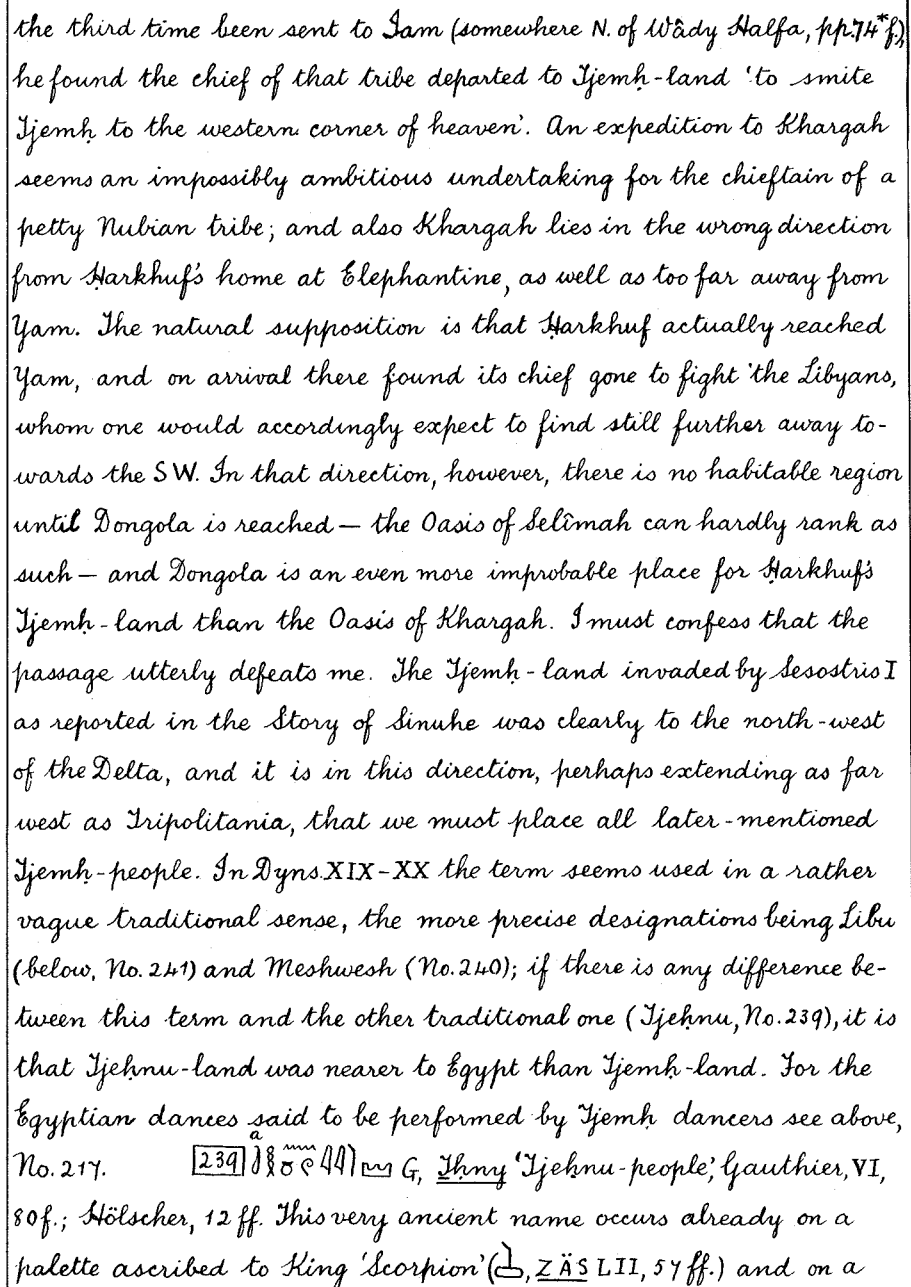 the third time been sent to Iam (somewhere N. of Wâdy Halfa, pp.74*f.),
he found the chief of that tribe departed to Tjemḥ-land 'to smite
Tjemḥ to the western corner of heaven'. An expedition to Khargah
seems an impossibly ambitious undertaking for the chieftain of a
petty Nubian tribe; and also Khargah lies in the wrong direction
from Ḥarkhuf's home at Elephantine, as well as too far away from
Yam. The natural supposition is that Ḥarkhuf actually reached
Yam, and on arrival there found its chief gone to fight 'the Libyans,
whom one would accordingly expect to find still further away to-
wards the SW. In that direction, however, there is no habitable region
until Dongola is reached — the Oasis of Selîmah can hardly rank as
such — and Dongola is an even more improbable place for Ḥarkhuf's
Tjemḥ-land than the Oasis of Khargah. I must confess that the
passage utterly defeats me. The Tjemḥ-land invaded by Sesostris I
as reported in the Story of Sinuhe was clearly to the north-west
of the Delta, and it is in this direction, perhaps extending as far
west as Tripolitania, that we must place all later-mentioned
Tjemḥ-people. In Dyns. XIX-XX the term seems used in a rather
vague traditional sense, the more precise designations being Libu
(below, No. 241) and Meshwesh (No. 240); if there is any difference be-
tween this term and the other traditional one (Tjeḥnu, No. 239), it is
that Tjeḥnu-land was nearer to Egypt than Tjemḥ-land. For the
Egyptian dances said to be performed by Tjemḥ dancers see above,
No. 217. 239 a G, Ṯḥny 'Tjeḥnu-people', Gauthier, VI,
80f.; Hölscher, 12 ff. This very ancient name occurs already on a
palette ascribed to King 'Scorpion' (, ZÄS LII, 57 ff.) and on a